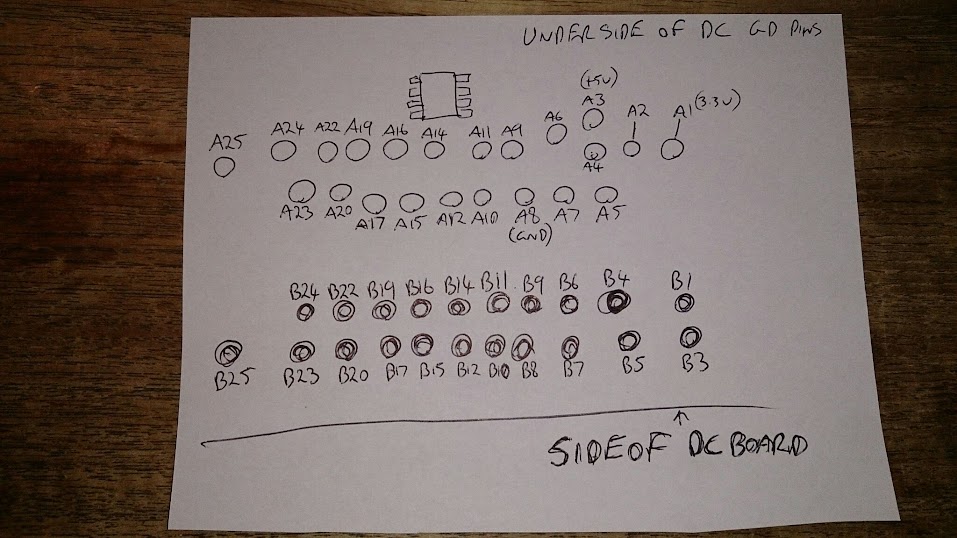 UNDERSIDE OF DC GD PINS
(+5V)
A3 A2 A1 (3.3V)
A25 A24 A22 A19 A16 A14 A11 A9 A6
A4
A23 A20 A17 A15 A12 A10 A8 A7 A5
(GND)
B24 B22 B19 B16 B14 B11 B9 B6 B4 B1
B25 B23 B20 B17 B15 B12 B10 B8 B7 B5 B3
SIDE OF DC BOARD